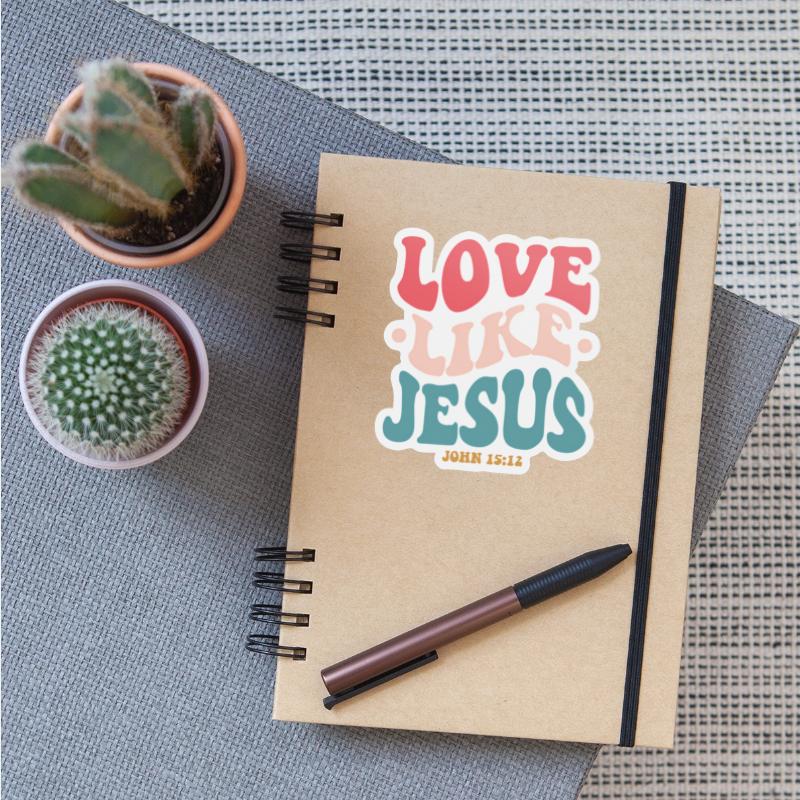 LOVE
•LIKE•
JESUS
JOHN 15:12